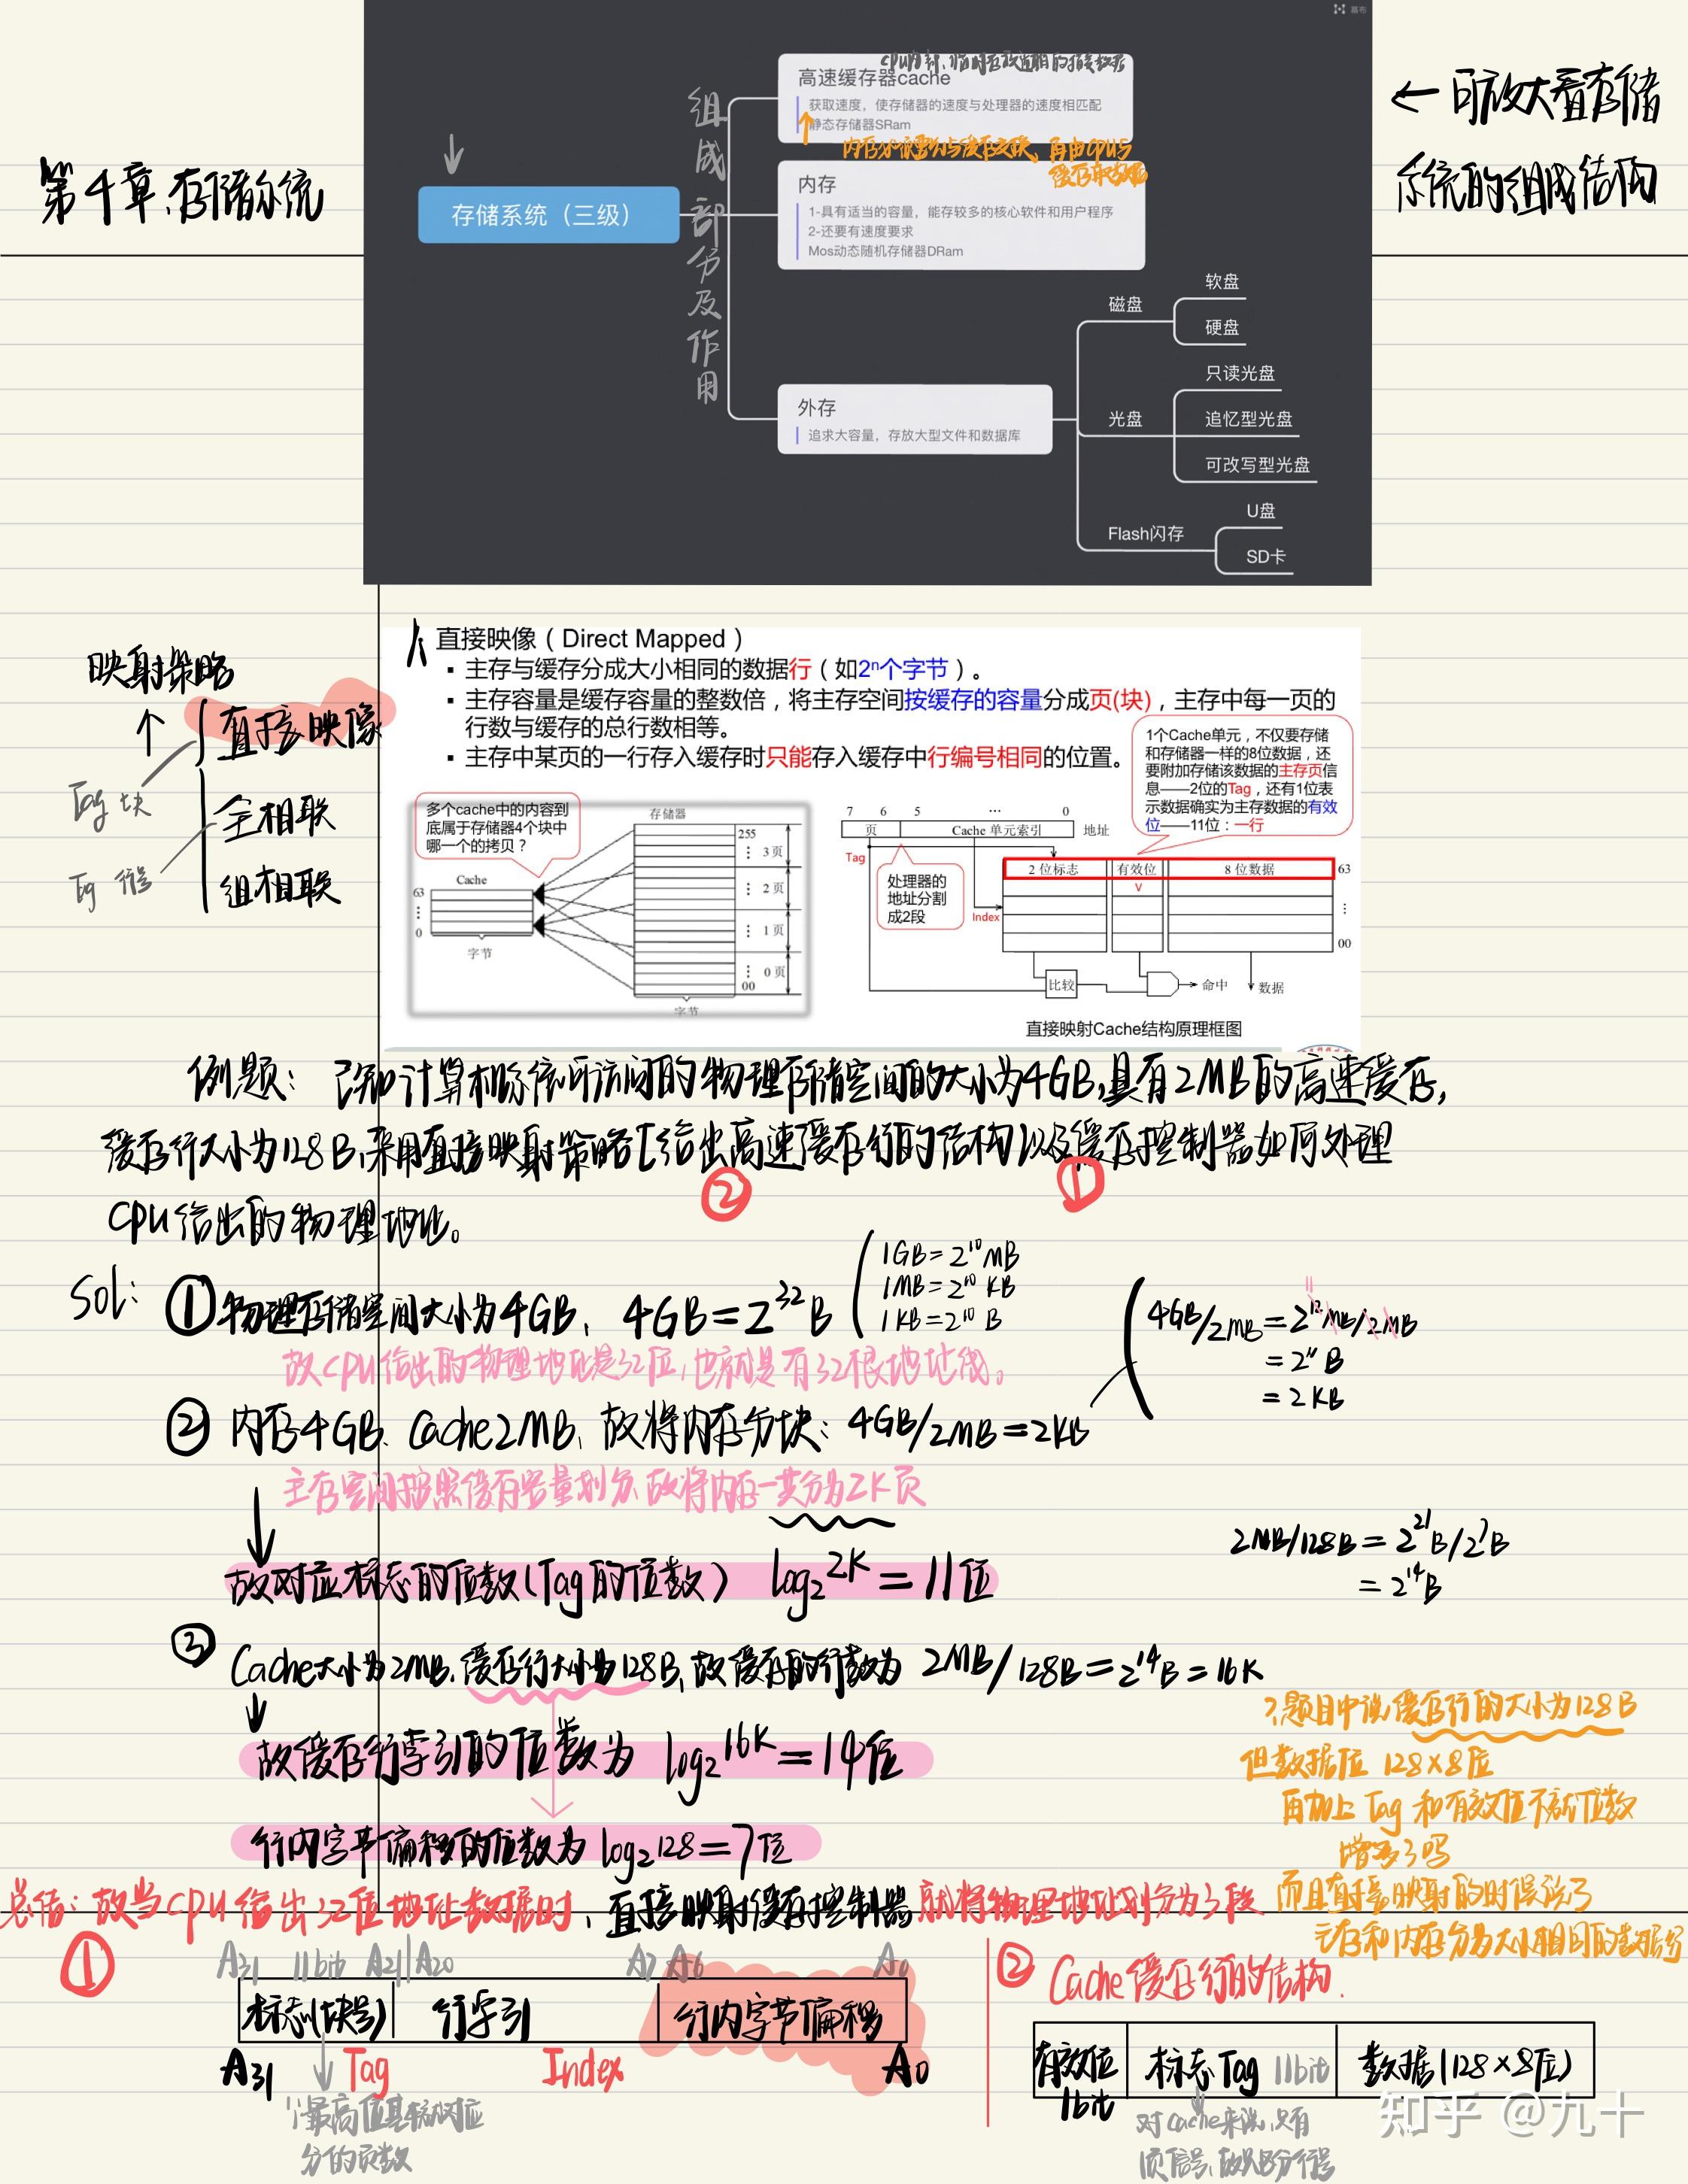 幕布
第4章.存储系统
←可放大看存储
系统的组成结构
组成部分及作用
存储系统（三级）
高速缓存器cache
获取速度，使存储器的速度与处理器的速度相匹配
静态存储器SRam
内存
1-具有适当的容量，能存较多的核心软件和用户程序
2-还要有速度要求
Mos动态随机存储器DRam
外存
追求大容量，存放大型文件和数据库
磁盘
软盘
硬盘
光盘
只读光盘
追忆型光盘
可改写型光盘
Flash闪存
U盘
SD卡
映射策略
直接映像
全相联
组相联
Tag 块
Tag 行号
直接映像（Direct Mapped）
▪ 主存与缓存分成大小相同的数据行（如2ⁿ个字节）。
▪ 主存容量是缓存容量的整数倍，将主存空间按缓存的容量分成页(块)，主存中每一页的
行数与缓存的总行数相等。
▪ 主存中某页的一行存入缓存时只能存入缓存中行编号相同的位置。
1个Cache单元，不仅要存储
和存储器一样的8位数据，还
要附加存储该数据的主存页信
息——2位的Tag，还有1位表
示数据确实为主存数据的有效
位——11位：一行
多个cache中的内容到
底属于存储器4个块中
哪一个的拷贝？
存储器
255
⋮ 3页
⋮ 2页
⋮ 1页
⋮ 0页
00
字节
Cache
63
⋮
0
字节
7 6 5 … 0
页 Cache 单元索引 地址
Tag
处理器的
地址分割
成2段
Index
2 位标志 有效位 8 位数据 63
V
⋮
00
比较 命中 数据
直接映射Cache结构原理框图
例题：已知计算机系统可访问的物理存储空间的大小为4GB,具有2MB的高速缓存,
缓存行大小为128B,采用直接映射策略[给出高速缓存行的结构以及缓存控制器如何处理
② ①
CPU给出的物理地址。
Sol:
①物理存储空间大小为4GB、4GB=2³²B
1GB=2¹⁰MB
1MB=2¹⁰KB
1KB=2¹⁰B
故CPU给出的物理地址是32位,也就是有32根地址线。
4GB/2MB=2¹²MB/2MB
11
=2¹¹B
=2KB
②内存4GB、Cache2MB、故将内存分块：4GB/2MB=2KB
主存空间按照缓存容量划分.故将内存一共分为2K页
故对应标志的位数(Tag的位数) log₂2K=11位
2MB/128B=2²¹B/2⁷B
=2¹⁴B
③Cache大小为2MB.缓存行大小为128B,故缓存的行数为 2MB/128B=2¹⁴B=16K
故缓存行索引的位数为 log₂16K=14位
行内字节偏移的位数为log₂128=7位
?题目中说缓存行的大小为128B
但数据位 128×8位
再加上 Tag 和有效位不就位数
增多了吗
而且直接映射的时候说了
主存和内存分为大小相同的数据行
总结：故当CPU给出32位地址数据时、直接映射缓存控制器就将物理地址划分为3段
①
A31 11bit A21 A20 A7 A6 A0
标志(块号) 行索引 行内字节偏移
A31 Tag Index A0
② Cache缓存行的结构.
有效位 标志Tag 11bit 数据(128×8位)
1bit
知乎 @九十